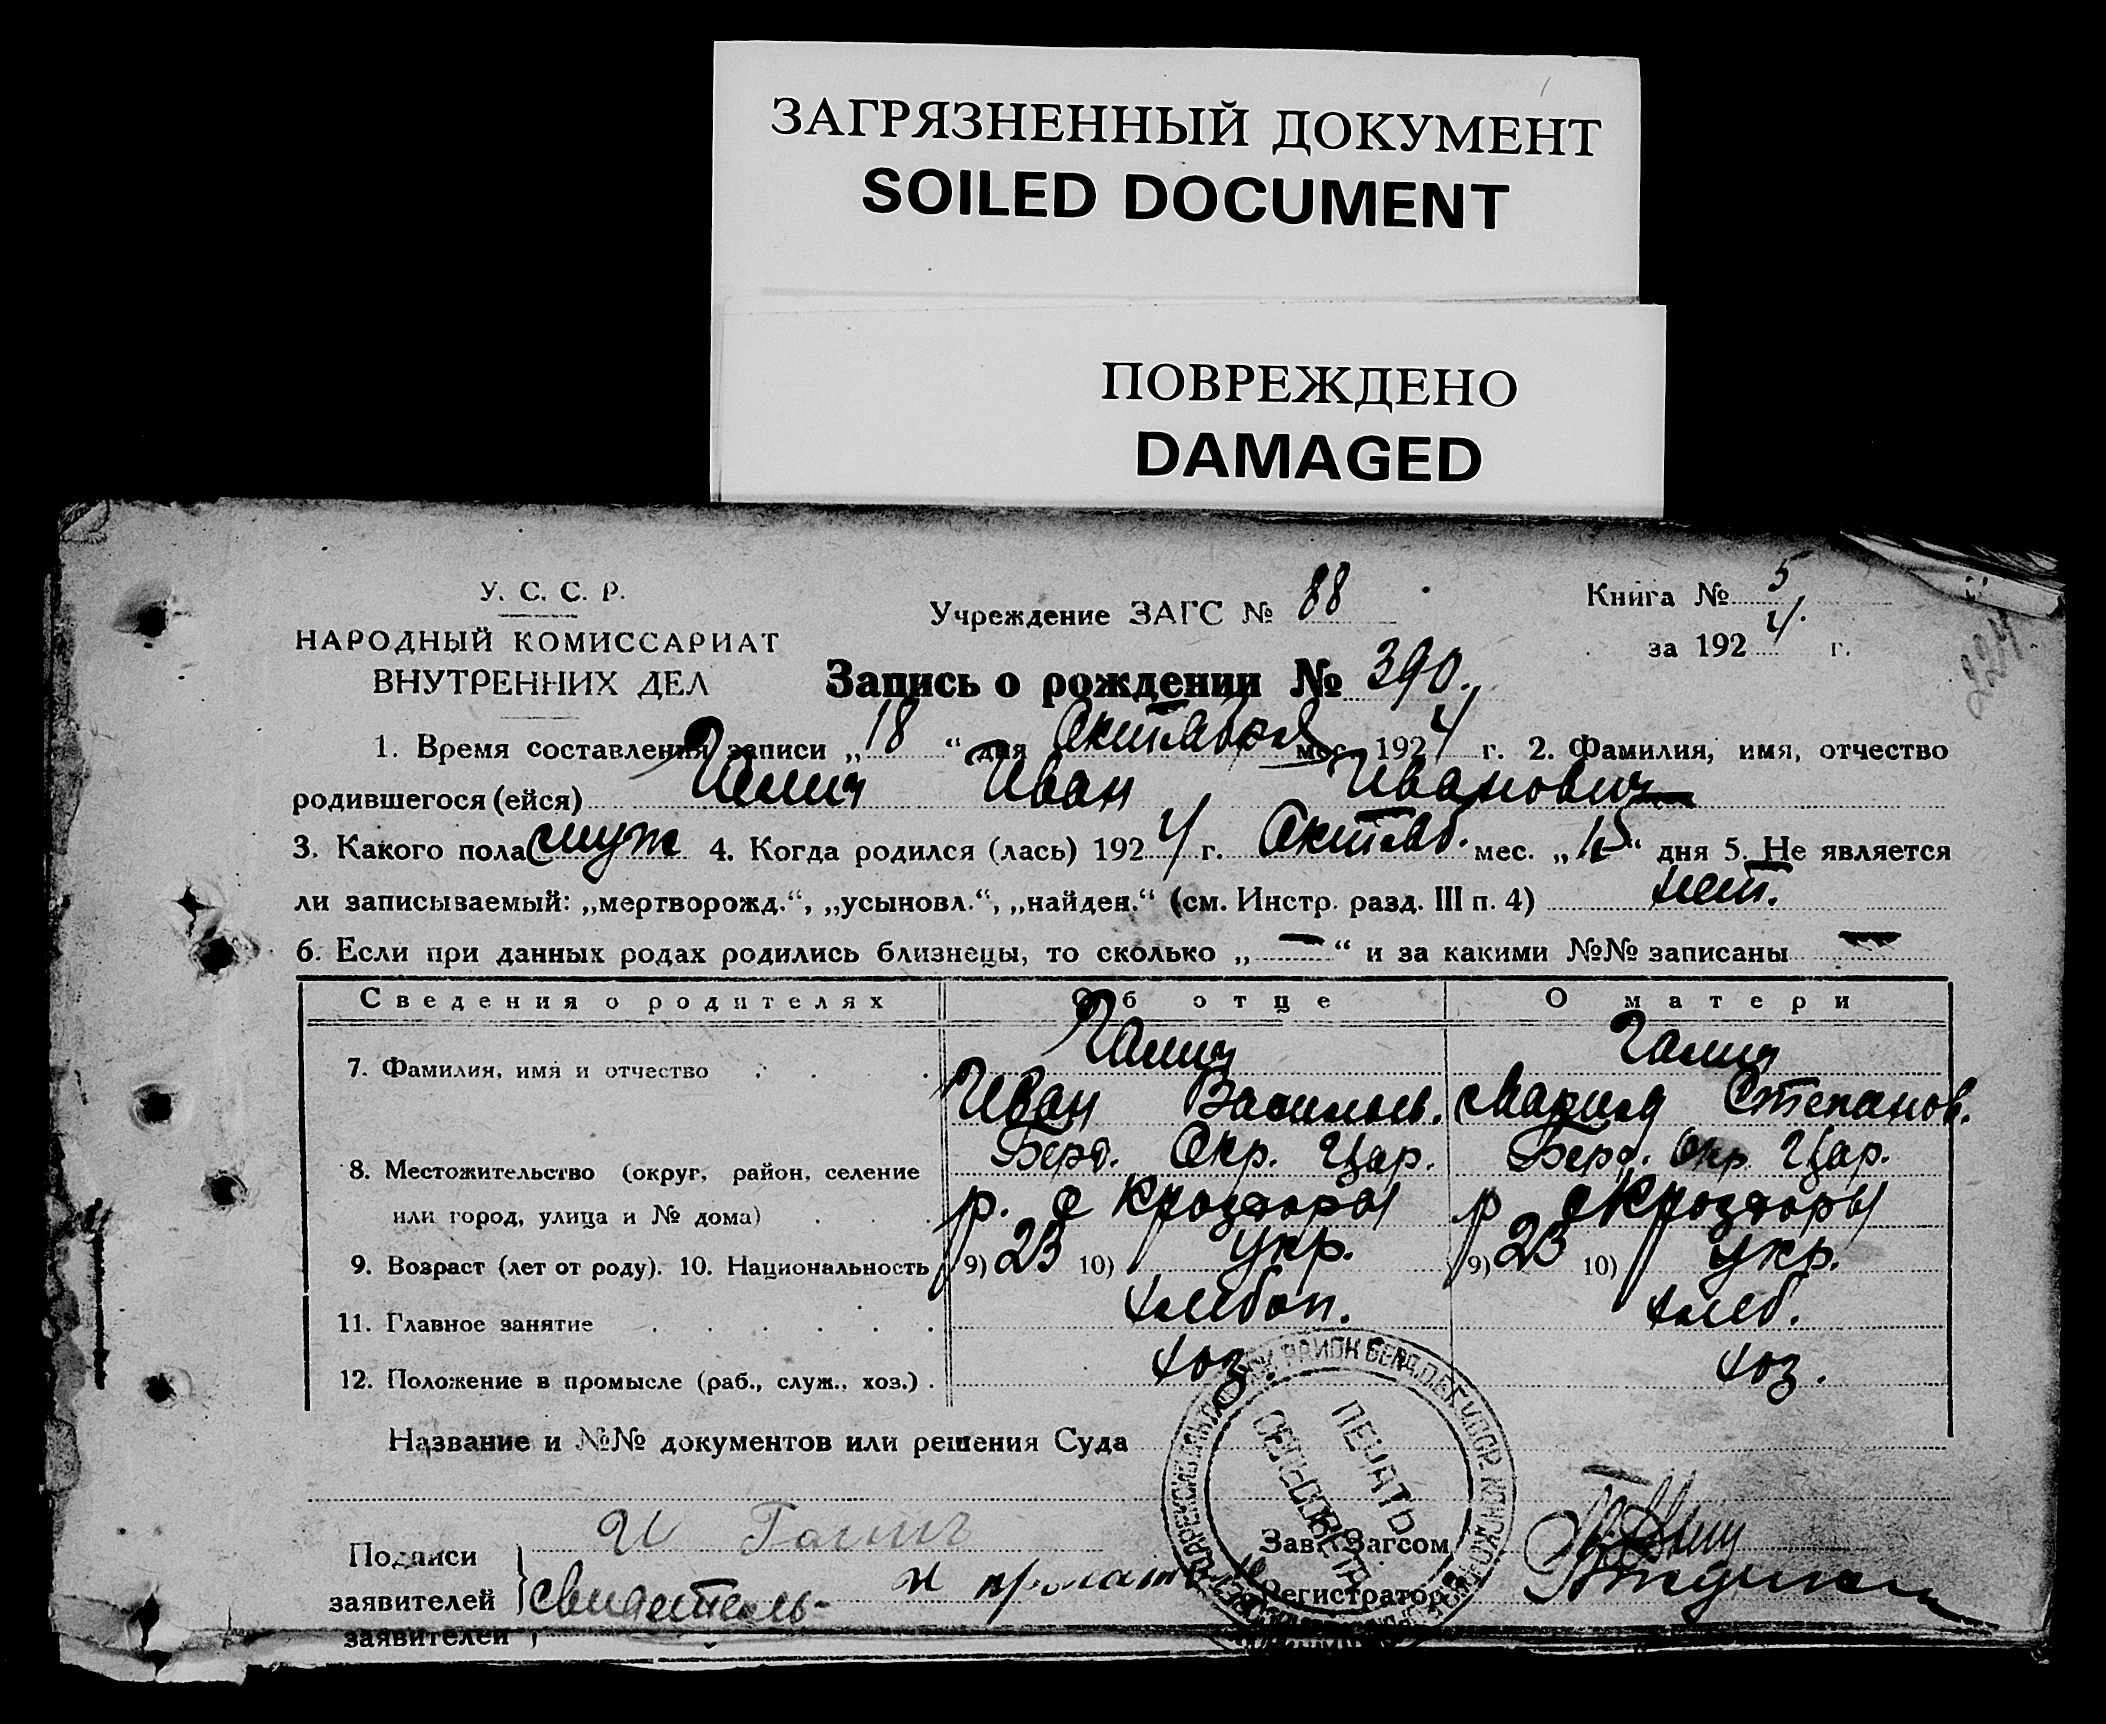 ЗАГРЯЗНЕННЫЙ ДОКУМЕНТ
SOILED DOCUMENT
ПОВРЕЖДЕНО
DAMAGED
У. С. С. Р.
НАРОДНЫЙ КОМИССАРИАТ
ВНУТРЕННИХ ДЕЛ
Учреждение ЗАГС № 88
Книга № 5
за 1924 г.
224
Запись о рождении № 390.
1. Время составления записи „18“ дня Октября мес. 1924 г. 2. Фамилия, имя, отчество
родившегося (ейся) Галич Иван Иванович
3. Какого пола муж 4. Когда родился (лась) 1924 г. Октяб. мес. „15“ дня 5. Не является
ли записываемый: „мертворожд.“, „усыновл.“, „найден.“ (см. Инстр. разд. III п. 4) нет.
6. Если при данных родах родились близнецы, то сколько „—“ и за какими №№ записаны —
Сведения о родителях Об отце О матери
7. Фамилия, имя и отчество Галич Галич
Иван Васильев. Мария Степанов.
8. Местожительство (округ, район, селение Берд. Окр. Цар. Берд. Окр. Цар.
или город, улица и № дома) р. с р с
9. Возраст (лет от роду). 10. Национальность 9) 23 10) Укр. 9) 23 10) Укр.
11. Главное занятие хлебоп. хлеб.
12. Положение в промысле (раб., служ., хоз.) хоз. хоз.
Название и №№ документов или решения Суда
ПЕЧАТЬ
СЕЛЬСОВЕТА
Подписи
заявителей
И Галич
свидетель-
Зав. Загсом
Регистратор
заявителей